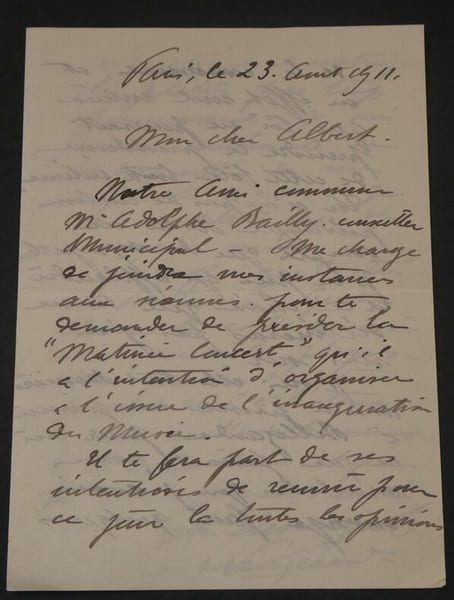 Paris, le 23. Avril 1911.
Mon cher Albert.
Notre Ami commun
Mr Adolphe Bailly. conseiller
Municipal - me charge
de joindre mes instances
aux siennes. pour te
demander de présider la
"Matinée Concert" qu'il
a l'intention d'organiser
à l'issue de l'inauguration
du Musée.
Il te fera part de ses
intentions de réunir pour
ce jour là toutes les opinions